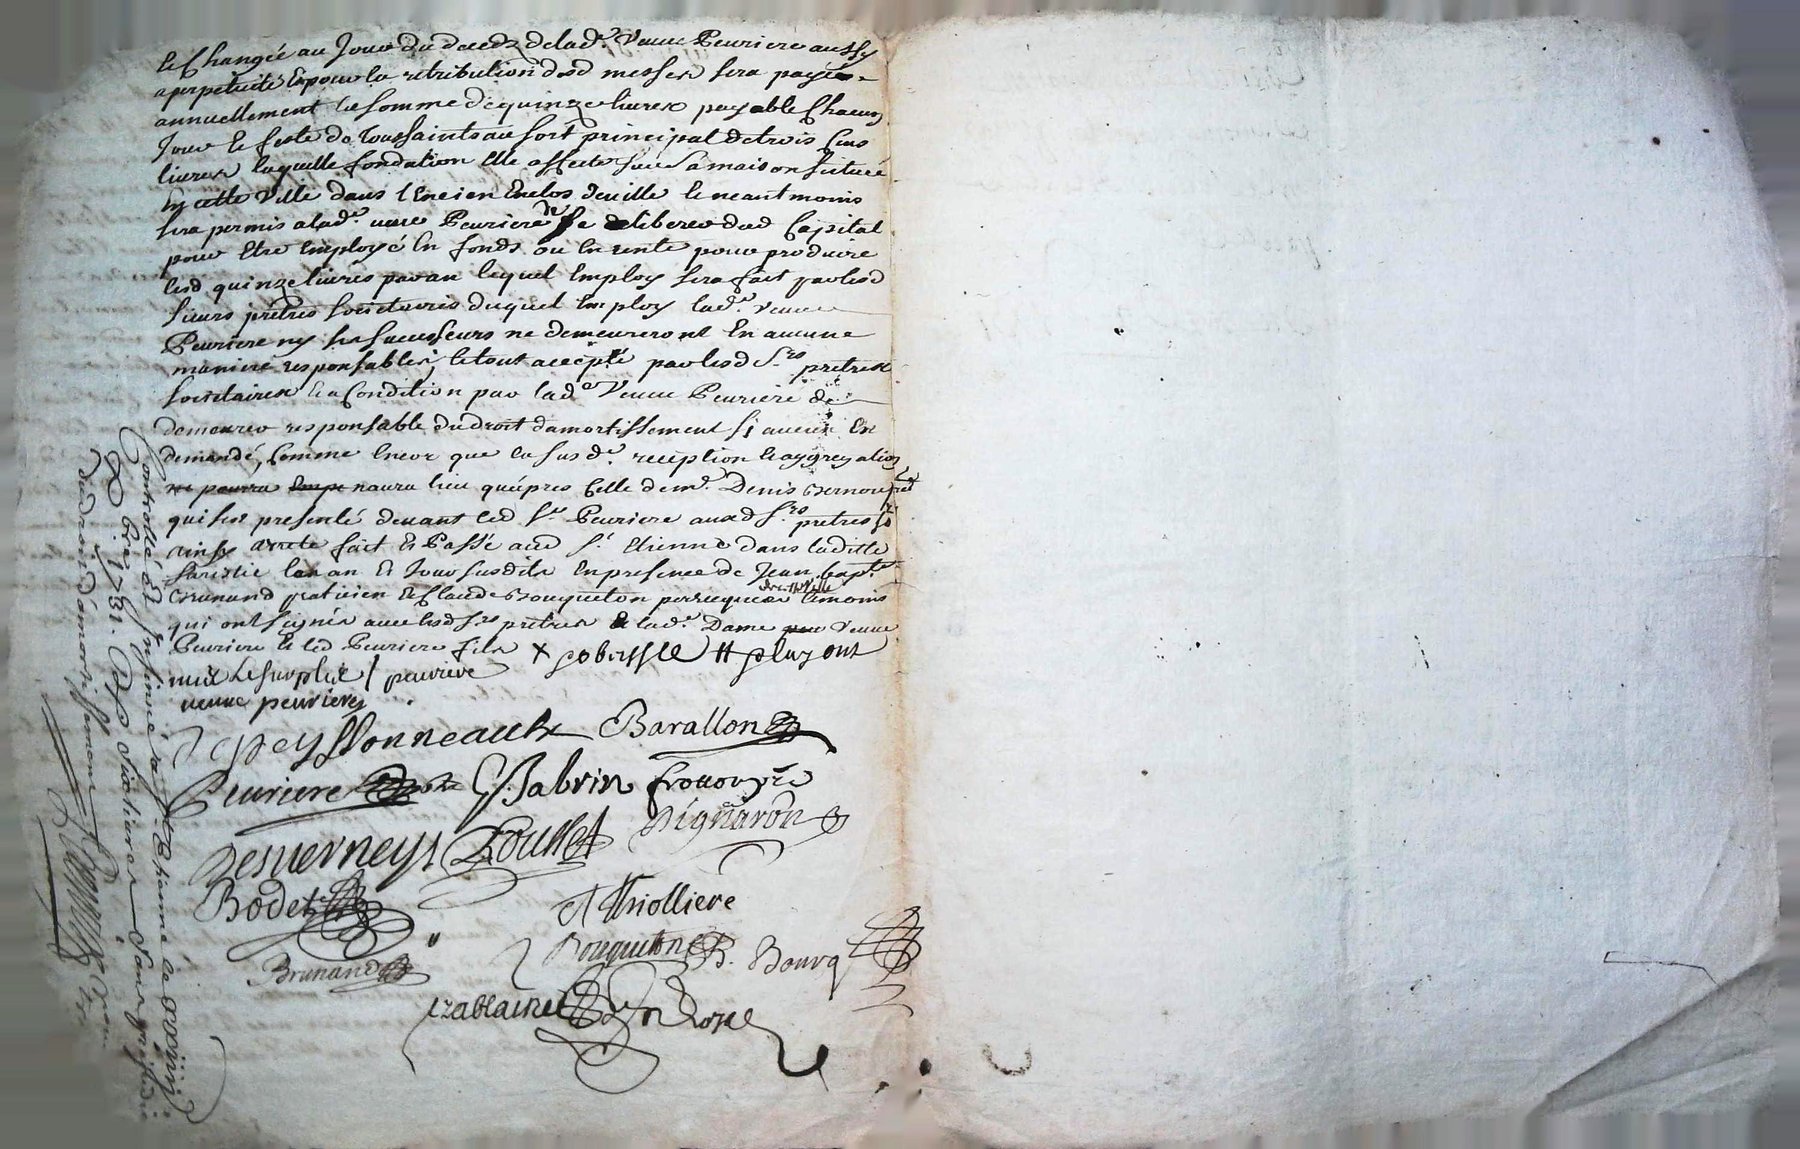 et Changée au Jour du deceds de lad.e Veuve Peuriere aussy
a perpetuité et pour la retribution desd messes sera payée
annuellement la somme de quinze livres payable Chacun
Jour et feste de Toussaints au sort principal de trois Cens
livres laquelle fondation elle affecte sur sa maison scituée
en cette Ville dans l'Encien Enclos de ville et neantmoins
sera permis a lad.e veuve Peuriere de se deliberer dud Capital
pour Etre Employé En fonds ou En rente pour produire
lesd quinze livres par an lequel Employ sera fait par lesd
sieurs prêtres societaires duquel Employ lad.e Veuve
Peuriere ny ses successeurs ne demeureront En aucune
maniere responsables, le tout accepté par lesd S.rs prêtres
societaires et a Condition par lad.e Veuve Peuriere de
demeurer responsable du droit d'amortissement si aucun En
demandé, Comme Encor que la susd.e reception et aggregation
ne pourra naura lieu qu'épres Celle de m.e Denis
qui sera presenté devant led S.r Peuriere auxd S.rs prêtres
ainsy arreté fait et Passé aud S.t Etienne dans laditte
Saristie les an et Jour susdits En presence de Jean Bapt.e
Brunand praticien et Claude Bouqueton perruquier de cette Ville temoins
qui ont signés avec lesd S.rs prêtres et lad.e Dame Veuve
Peuriere et led Peuriere fils X gobersse # pluzont
mix Le surplus / peuriere
veuve peuriere
Depeyssonneaulx Barallon
Peuriere G. Sabrin
Desverneys Pousset Pignaron
Bodet A Thiolliere
Bouqueton B. Bourg
Brunand
Controllé et Insinué à S.t Etienne le
8.bre 1731.
du droit d'amortissement